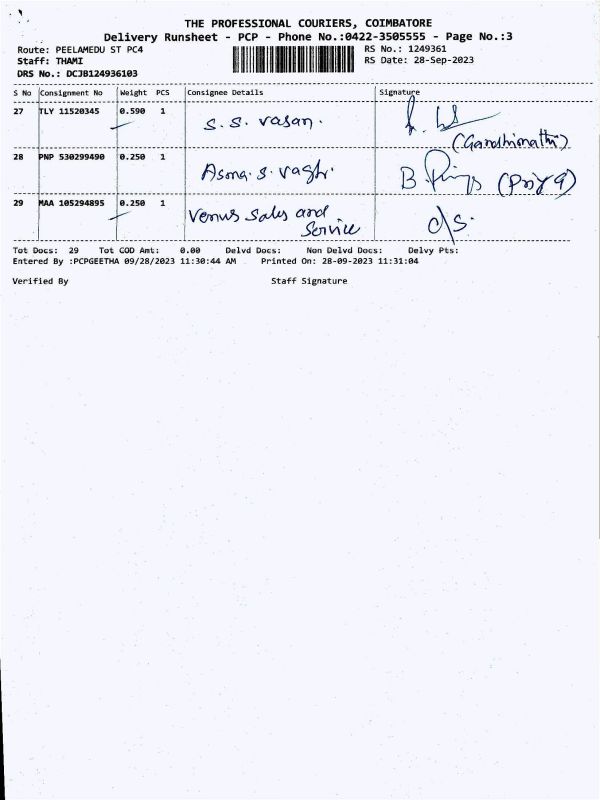 THE PROFESSIONAL COURIERS, COIMBATORE
Delivery Runsheet - PCP - Phone No.:0422-3505555 - Page No.:3
Route: PEELAMEDU ST PC4 RS No.: 1249361
Staff: THAMI RS Date: 28-Sep-2023
DRS No.: DCJB124936103
S No Consignment No Weight PCS Consignee Details Signature
27 TLY 11520345 0.590 1 S. S. Vasan.
(Gandhimathi)
28 PNP 530299490 0.250 1 B (Priya)
29 MAA 105294895 0.250 1 Venus Sales and
Service
Tot Docs: 29 Tot COD Amt: 0.00 Delvd Docs: Non Delvd Docs: Delvy Pts:
Entered By :PCPGEETHA 09/28/2023 11:30:44 AM Printed On: 28-09-2023 11:31:04
Verified By Staff Signature